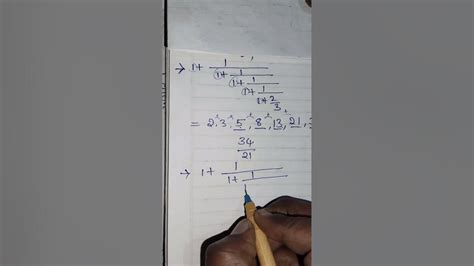 → 1+ 1
1+ 1
1+ 1
1+ 1
1+ 2
3
= 2, 3, 5, 8, 13, 21, 3
34
21
→ 1+ 1
1+ 1
1